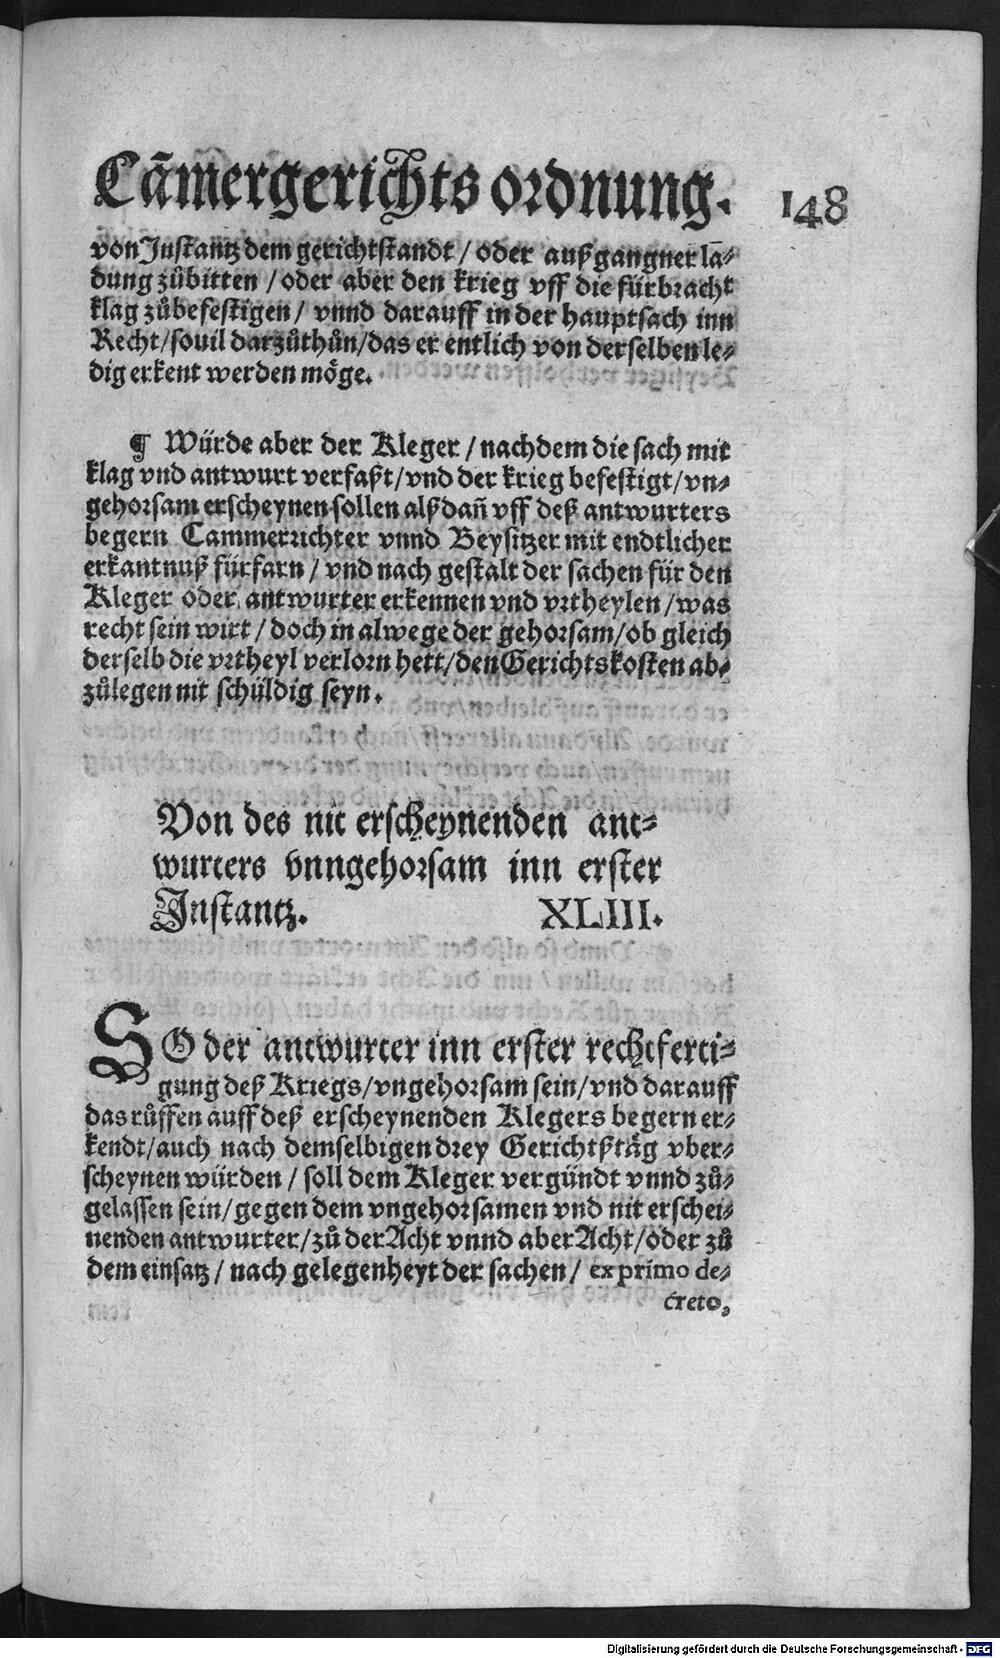 Cãmergerichts ordnung. 148
von Instantz dem gerichtstandt / oder außgangner la-
dung zůbitten / oder aber den krieg vff die fürbracht
klag zůbefestigen / vnnd darauff in der hauptsach inn
Recht / souil darzůthůn / das er entlich von derselben le-
dig erkent werden möge.
¶ Würde aber der Kleger / nachdem die sach mit
klag vnd antwurt verfaßt / vnd der krieg befestigt / vn-
gehorsam erscheynen sollen alßdañ vff deß antwurters
begern Cammerrichter vnnd Beysitzer mit endtlicher
erkantnuß fürfarn / vnd nach gestalt der sachen für den
Kleger oder antwurter erkennen vnd vrtheylen / was
recht sein wirt / doch in alwege der gehorsam / ob gleich
derselb die vrtheyl verlorn hett / den Gerichtskosten ab-
zůlegen nit schüldig seyn.
Von des nit erscheynenden ant-
wurters vnngehorsam inn erster
Instantz. XLIII.
SO der antwurter inn erster rechtferti-
gung deß Kriegs / vngehorsam sein / vnd darauff
das růffen auff deß erscheynenden Klegers begern er-
kendt / auch nach demselbigen drey Gerichtßtäg vber-
scheynen würden / soll dem Kleger vergündt vnnd zů-
gelassen sein / gegen dem vngehorsamen vnd nit erschei-
nenden antwurter / zů der Acht vnnd aber Acht / oder zů
dem einsatz / nach gelegenheyt der sachen / ex primo de-
creto,
Digitalisierung gefördert durch die Deutsche Forschungsgemeinschaft - DFG